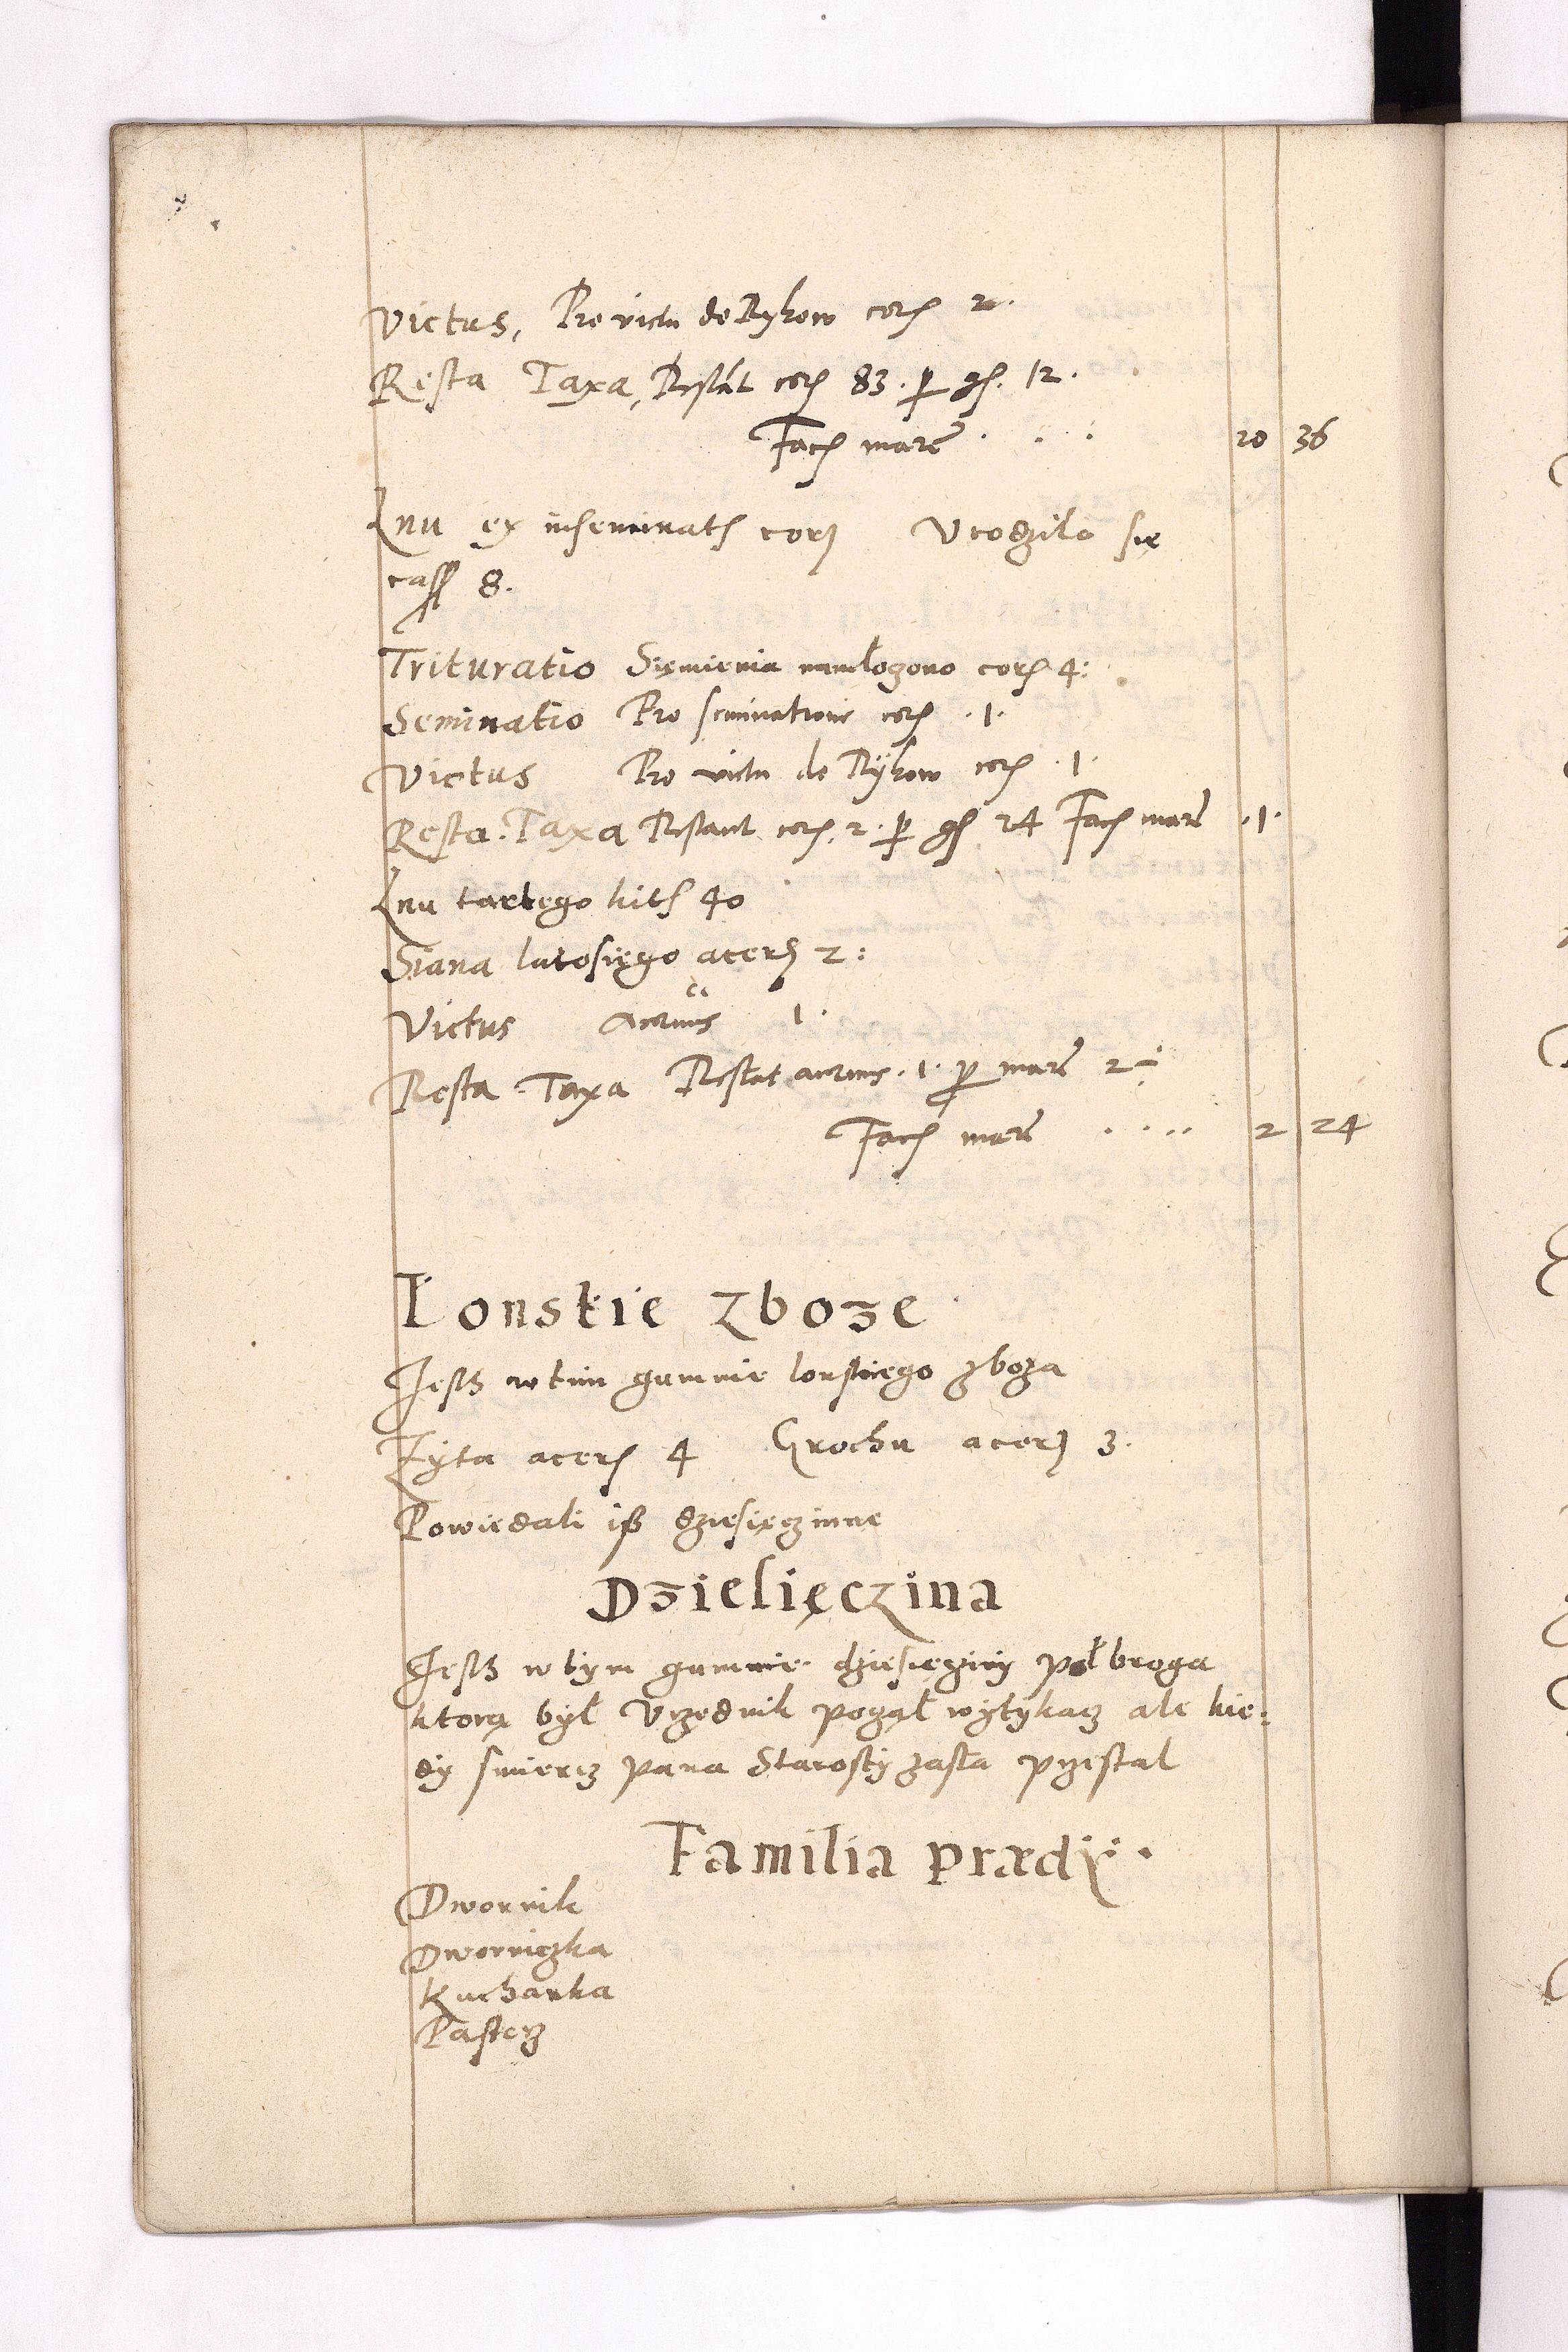 Victus, Pro victu de Rykow corꝭ 2.
Resta Taxa, Restāt corꝭ 83. ꝑ gꝭ. 12.
Facꝭ marc̄ . . . 20 36
Lnu ex inseminatꝭ corꝭ Vrodzilo się
cass 8.
Trituratio Siemienia namłoczono corꝭ 4:
Seminatio Pro seminatione corꝭ .1.
Victus Pro victu de Rÿkow corꝭ .1.
Resta. Taxa Restant corꝭ. 2. ꝑ gꝭ 24 Facꝭ marc̄ .1.
Lnu tartego kitꝭ 40
Siana lutosięgo acerꝭ 2:
Victus Acervus 1.
Resta Taxa Restat acervus .1. ꝑ marc̄ 2÷
Facꝭ marc̄ .... 2 24
Lonskie zboze
Jestz w tim gumnie lonskiego zboza
Zyta acerꝭ 4 Grochu acerꝭ 3.
Powiedali iß dziesięczinne
Dzielięczina
Jestz w tym gumnie dziesięcziny poł broga
ktorą był Vrzednik począł wytykacz ale kie:
dy smiercz pana Starosty zasła przestal
Familia prædij.
Dwornik
Dworniczka
Kucharka
Pasterz